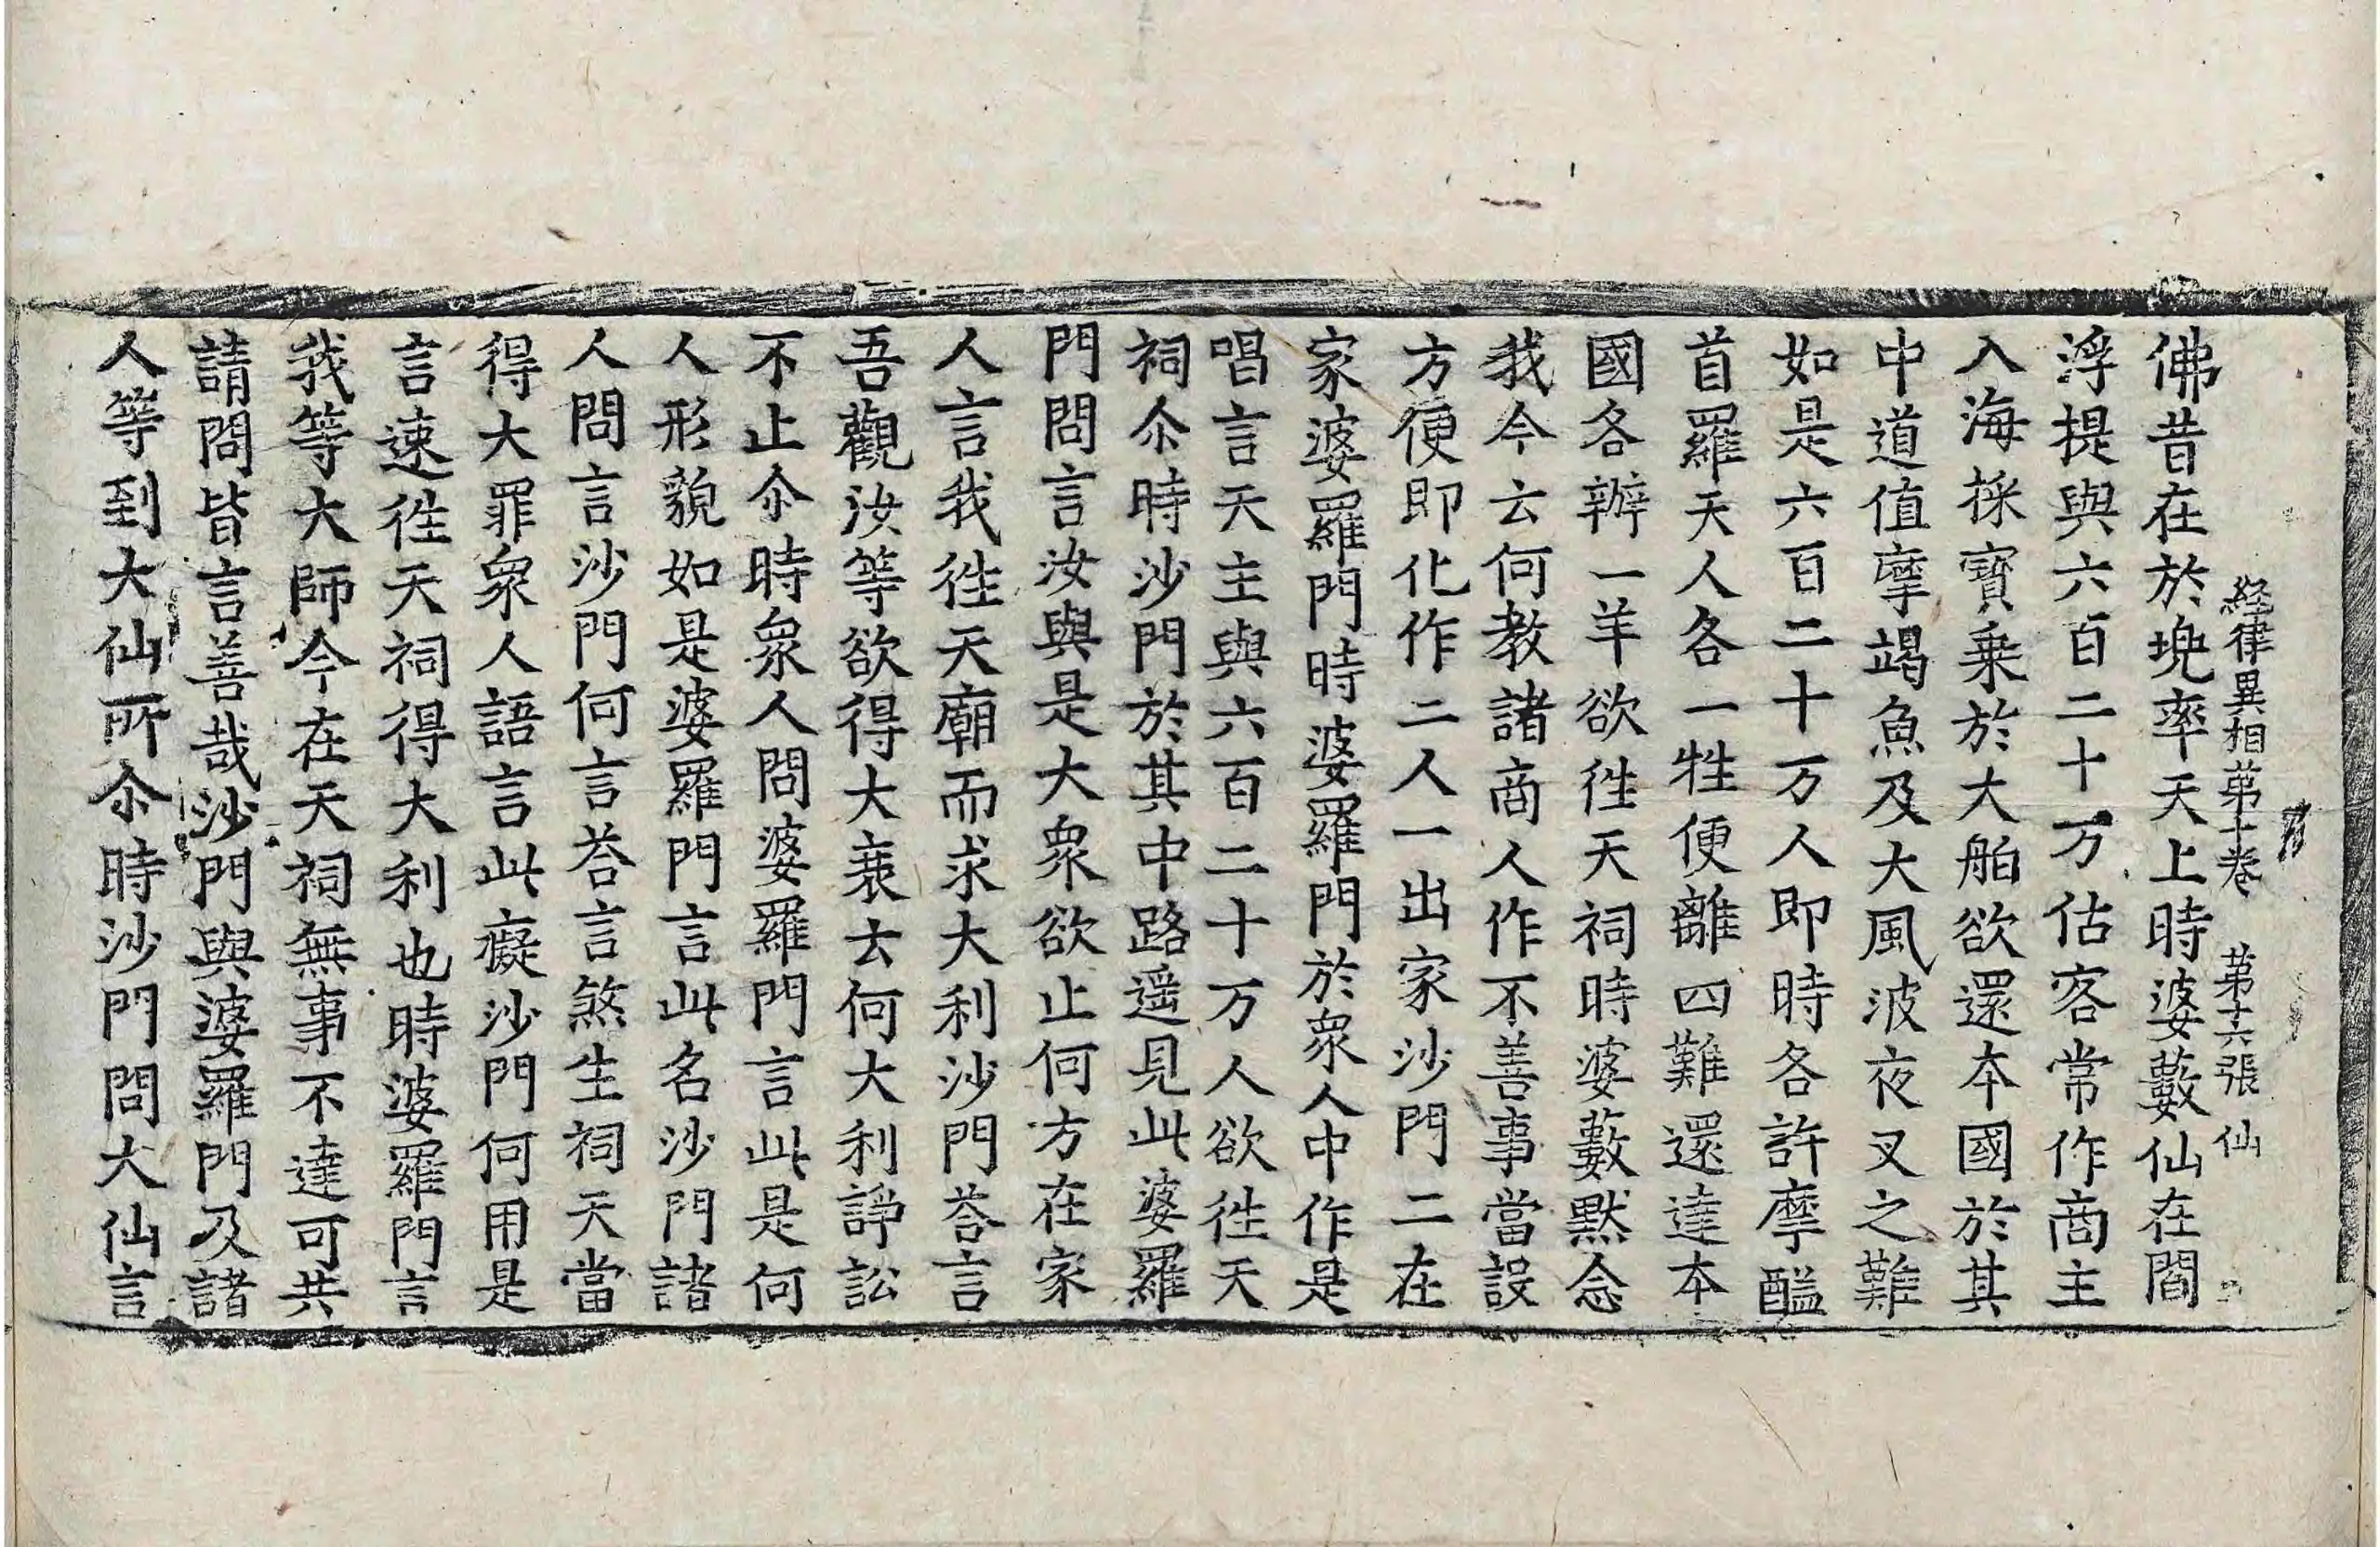 経律異相第十卷 第十六張 仙
佛昔在於兜率天上時婆藪仙在閻
浮提與六百二十万估客常作商主
入海採寶乗於大舶欲還本國於其
中道值摩竭魚及大風波夜叉之難
如是六百二十万人即時各許摩醯
首羅天人各一牲便離四難還達本
國各辦一羊欲徃天祠時婆藪黙念
我今云何教諸商人作不善事當設
方便即化作二人一出家沙門二在
家婆羅門時婆羅門於眾人中作是
唱言天主與六百二十万人欲徃天
祠尒時沙門於其中路遥見此婆羅
門問言汝與是大眾欲止何方在家
人言我徃天廟而求大利沙門荅言
吾觀汝等欲得大衰去何大利諍訟
不止尒時眾人問婆羅門言此是何
人形貌如是婆羅門言此名沙門諸
人問言沙門何言荅言煞生祠天當
得大罪眾人語言此癡沙門何用是
言速徃天祠得大利也時婆羅門言
我等大師今在天祠無事不達可共
請問皆言善哉沙門與婆羅門及諸
人等到大仙所尒時沙門問大仙言